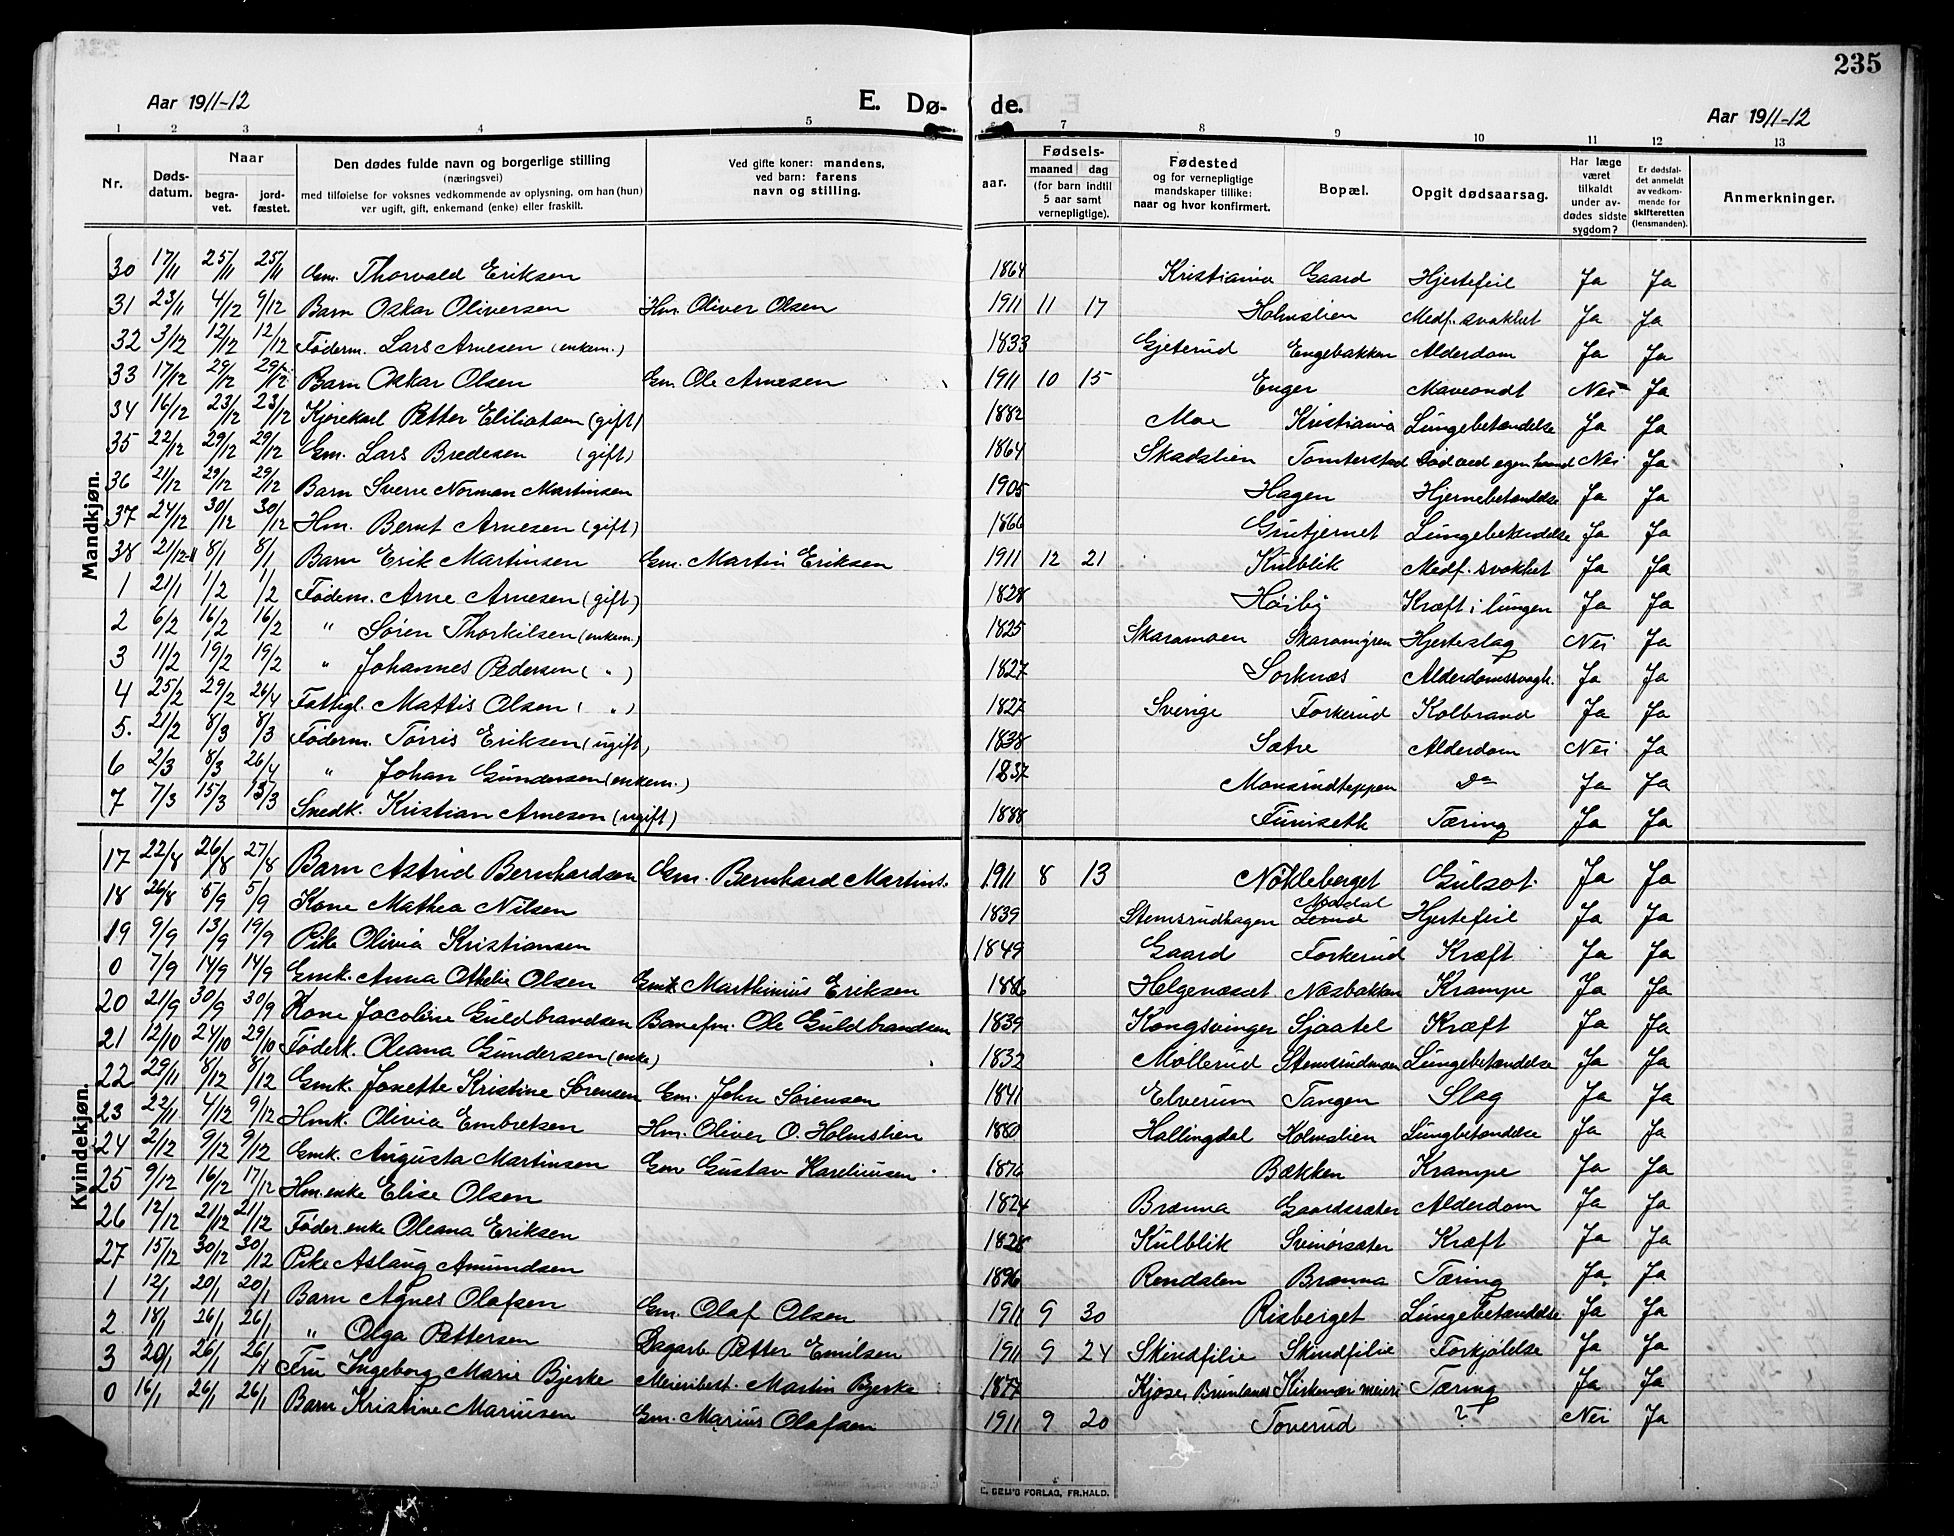 235
Aar 1911-12 E. Dø- de. Aar 1911-12
1 2 3 4 5 7 8 9 10 11 12 13
Nr. Døds-datum. Naar begra-vet. jord-fæstet. Den dødes fulde navn og borgerlige stilling (næringsvei) med tilføielse for voksnes vedkommende av oplysning, om han (hun) var ugift, gift, enkemand (enke) eller fraskilt. Ved gifte koner: mandens, ved barn: farens navn og stilling. aar. Fødsels- maaned dag (for barn indtil 5 aar samt vernepligtige). Fødested og for vernepligtige mandskaper tillike: naar og hvor konfirmert. Bopæl. Opgit dødsaarsag. Har læge været tilkaldt under av-dødes sidste sygdom? Er dødsfal-det anmeldt av vedkom-mende for skifteretten (lensmanden). Anmerkninger.
Mandkjøn.
30 17/11 25/11 25/11 Gm. Thorvald Eriksen 1864 Kristiania Gaard Hjertefeil Ja Ja
31 23/11 4/12 9/12 Barn Oskar Oliversen Hm. Oliver Olsen 1911 11 17 Holmslien Medf. svakhet Ja Ja
32 3/12 12/12 12/12 Føderm. Lars Arnesen (enkem.) 1833 Gjeterud Engebakken Alderdom Ja Ja
33 17/12 29/12 29/12 Barn Oskar Olsen Gm. Ole Arnesen 1911 10 15 Enger Maveondt Nei Ja
34 16/12 23/12 23/12 Kjørekarl Petter (gift) 1882 Moe Kristiania Lungebetændelse Ja Ja
35 22/12 29/12 29/12 Gm. Lars Bredesen (gift) 1864 Skadslien Tomterstad Død ved egen haand Nei Ja
36 21/12 29/12 29/12 Barn Sverre Norman Martinsen 1905 Hagen Hjernebetændelse Ja Ja
37 24/12 30/12 30/12 Hm. Bernt Arnesen (gift) 1866 Grutjernet Lungebetændelse Ja Ja
38 21/12-11 8/1 8/1 Barn Erik Martinsen Gm. Martin Eriksen 1911 12 21 Kulblik Medf. svakhet Ja Ja
1 21/1 1/2 1/2 Føderm. Arne Arnesen (gift) 1828 Høiby Kræft i lungen Ja Ja
2 6/2 16/2 16/2 " Søren Thorkilsen (enkem.) 1825 Skaramoen Skaramyren Hjerteslag Nei Ja
3 11/2 19/2 19/2 " Johannes Pedersen ( " ) 1827 Sorknæs Alderdomssvagh. Ja Ja
4 25/2 29/2 26/4 Fattigl. Mattis Olsen ( " ) 1827 Sverige Forkerud Kolbrand Ja Ja
5. 21/2 8/3 8/3 Føderm. Tørris Eriksen (ugift) 1838 Sætre Alderdom Nei Ja
6 2/3 8/3 26/4 " Johan Gundersen (enkem.) 1837 Monsrudteppen Do Ja Ja
7 7/3 15/3 15/3 Snedk. Kristian Arnesen (ugift) 1888 Furuseth Tæring Ja Ja
Kvindekjøn.
17 22/8 26/8 27/8 Barn Astrid Bernhardsen Gm. Bernhard Martins. 1911 8 13 Nøkleberget Gulsot. Ja Ja
18 26/8 5/9 5/9 Kone Mathea Nilsen 1839 Stemsrudhagen Hjertefeil Ja Ja
19 9/9 13/9 19/9 Pike Olivia Kristiansen 1849 Gaard Forkerud Kræft Ja Ja
0 7/9 14/9 14/9 Gmk. Anna Othelie Olsen Gmk Marthinius Eriksen 1886 Helgenæset Næsbakken Krampe Ja Ja
20 21/9 30/9 30/9 Kone Jacobine Guldbrandsen Banefm. Ole Guldbrandsen 1839 Kongsvinger Sjaatel Kræft Ja Ja
21 12/10 24/10 29/10 Føderk. Oleana Gundersen (enke) 1832 Møllerud Stemsrudmoen Lungebetændelse Ja Ja
22 29/11 8/12 8/12 Gmk. Jonette Kristine Sørensen Gm. John Sørensen 1841 Elverum Tangen Slag Ja Ja
23 22/11 4/12 9/12 Hmk. Olivia Embretsen Hm. Oliver O. Holmslien 1880 Hallingdal Holmslien Lungbetændelse Ja Ja
24 2/12 9/12 9/12 Gmk. Augusta Martinsen Gm Gustav Hareliusen 1876 Bækken Krampe Ja Ja
25 9/12 16/12 17/12 Hm. enke Elise Olsen 1824 Brænna Gaardsæter Alderdom Ja Ja
26 12/12 21/12 21/12 Føder. enke Oleana Eriksen 1828 Kulblik Svinørsæter Kræft Ja Ja
27 15/12 30/12 30/12 Pike Aslaug Amundsen 1896 Rendalen Brænna Tæring Ja Ja
1 12/1 20/1 20/1 Barn Agnes Olafsen Gm. Olaf Olsen 1911 9 30 Risberget Lungebetændelse Ja Ja
2 18/1 26/1 26/1 " Olga Pettersen Dagarb Petter Emilsen 1911 9 24 Skindfilie Skindfilie Forkjølelse Ja Ja
3 20/1 26/1 26/1 Fru Ingeborg Marie Bjerke Meieribest. Martin Bjerke 1877 Kjøse, Brunlanes Kirkenær meieri Tæring Ja Ja
0 16/1 26/1 26/1 Barn Kristine Mariusen Gm. Marius Olafsen 1911 9 20 Toverud ? Nei Ja
E. SEM'S FORLAG, FR.HALD.